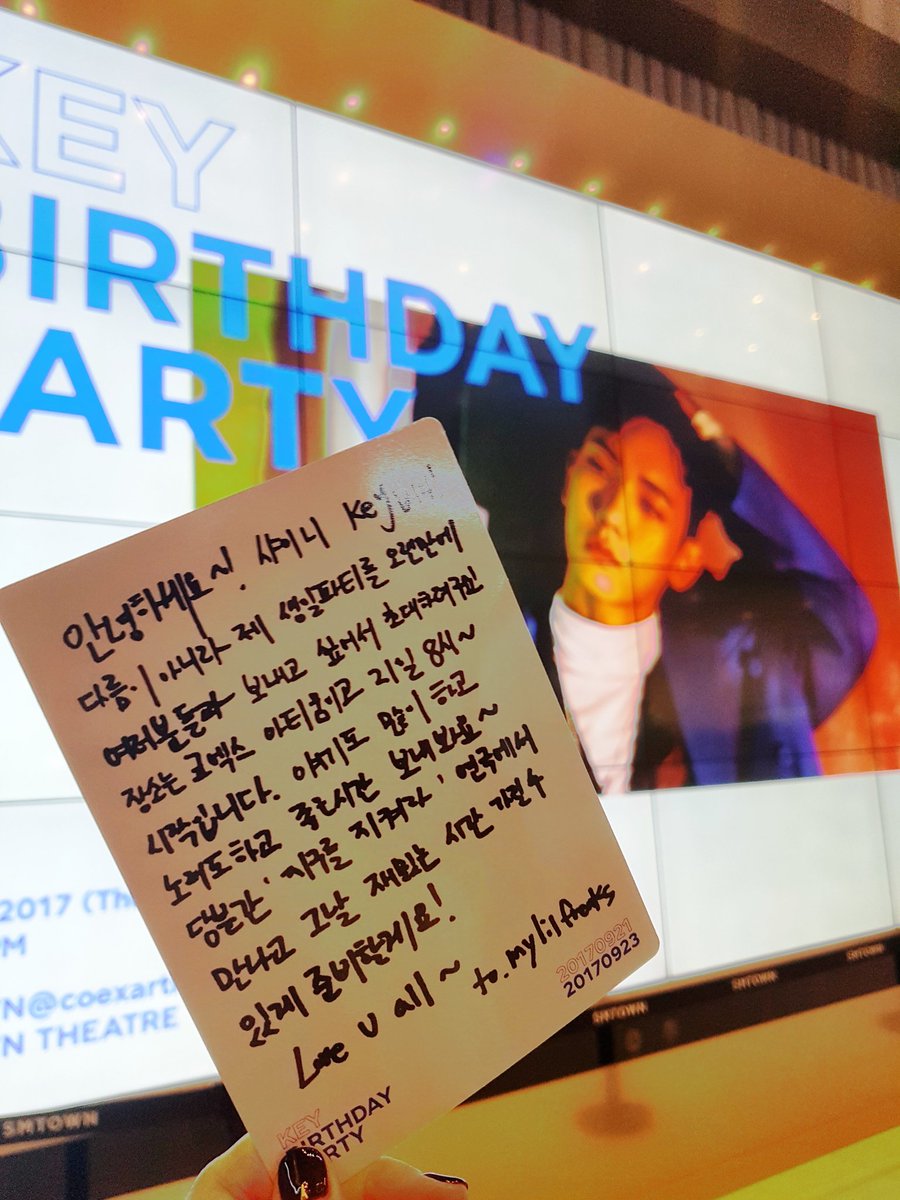 KEY
BIRTHDAY
ARTY
안녕하세요~! 샤이니 Key
다름이 아니라 제 생일파티를 오랜만에
여러분들과 보내고 싶어서
장소는 코엑스 아티움이고 21일 8시~
시작입니다. 얘기도 많이 하고
노래도하고 좋은시간 보내보아요~
당분간 '지구를 지켜라' 연극에서
만나고 그날 재밌는 시간 가질 수
있게 준비할게요!
Love U all ~ to. my lil freaks
20170921
20170923
KEY
BIRTHDAY
RTY
2017 (Th
PM
N@coexart
N THEATRE
SMTOWN
SMTOWN
SMTOWN
SMTOWN